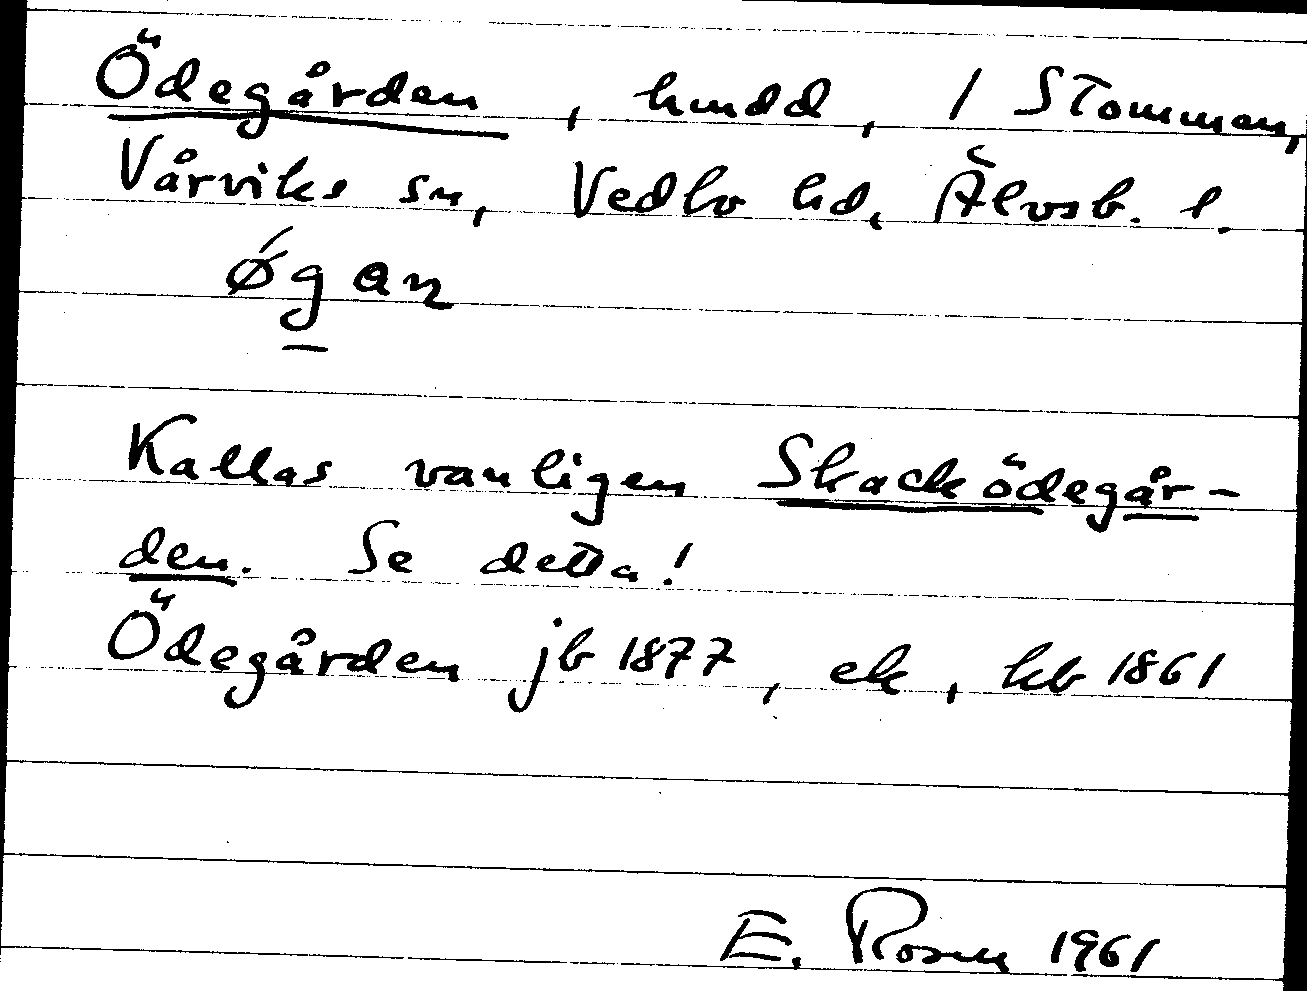 Ödegården, hmdd, 1 Stommen,
Vårviks sn, Vedbo hd, Älvsb. l.
ǿgan
Kallas vanligen Skacködegår-
den. Se detta!
Ödegården jb 1877, ek, kb 1861
E. Rosen 1961